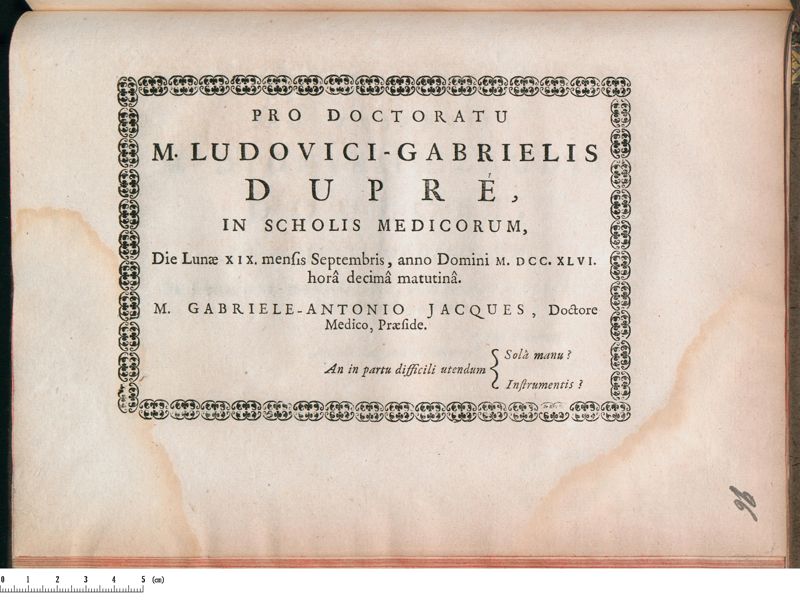 PRO DOCTORATU
M. LUDOVICI-GABRIELIS
DUPRÉ,
IN SCHOLIS MEDICORUM,
Die Lunæ XIX. mensis Septembris, anno Domini M. DCC. XLVI.
horâ decimâ matutinâ.
M. GABRIELE-ANTONIO JACQUES, Doctore
Medico, Præside.
An in partu difficili utendum { Solà manu?
Instrumentis?
96
0 1 2 3 4 5 (cm)